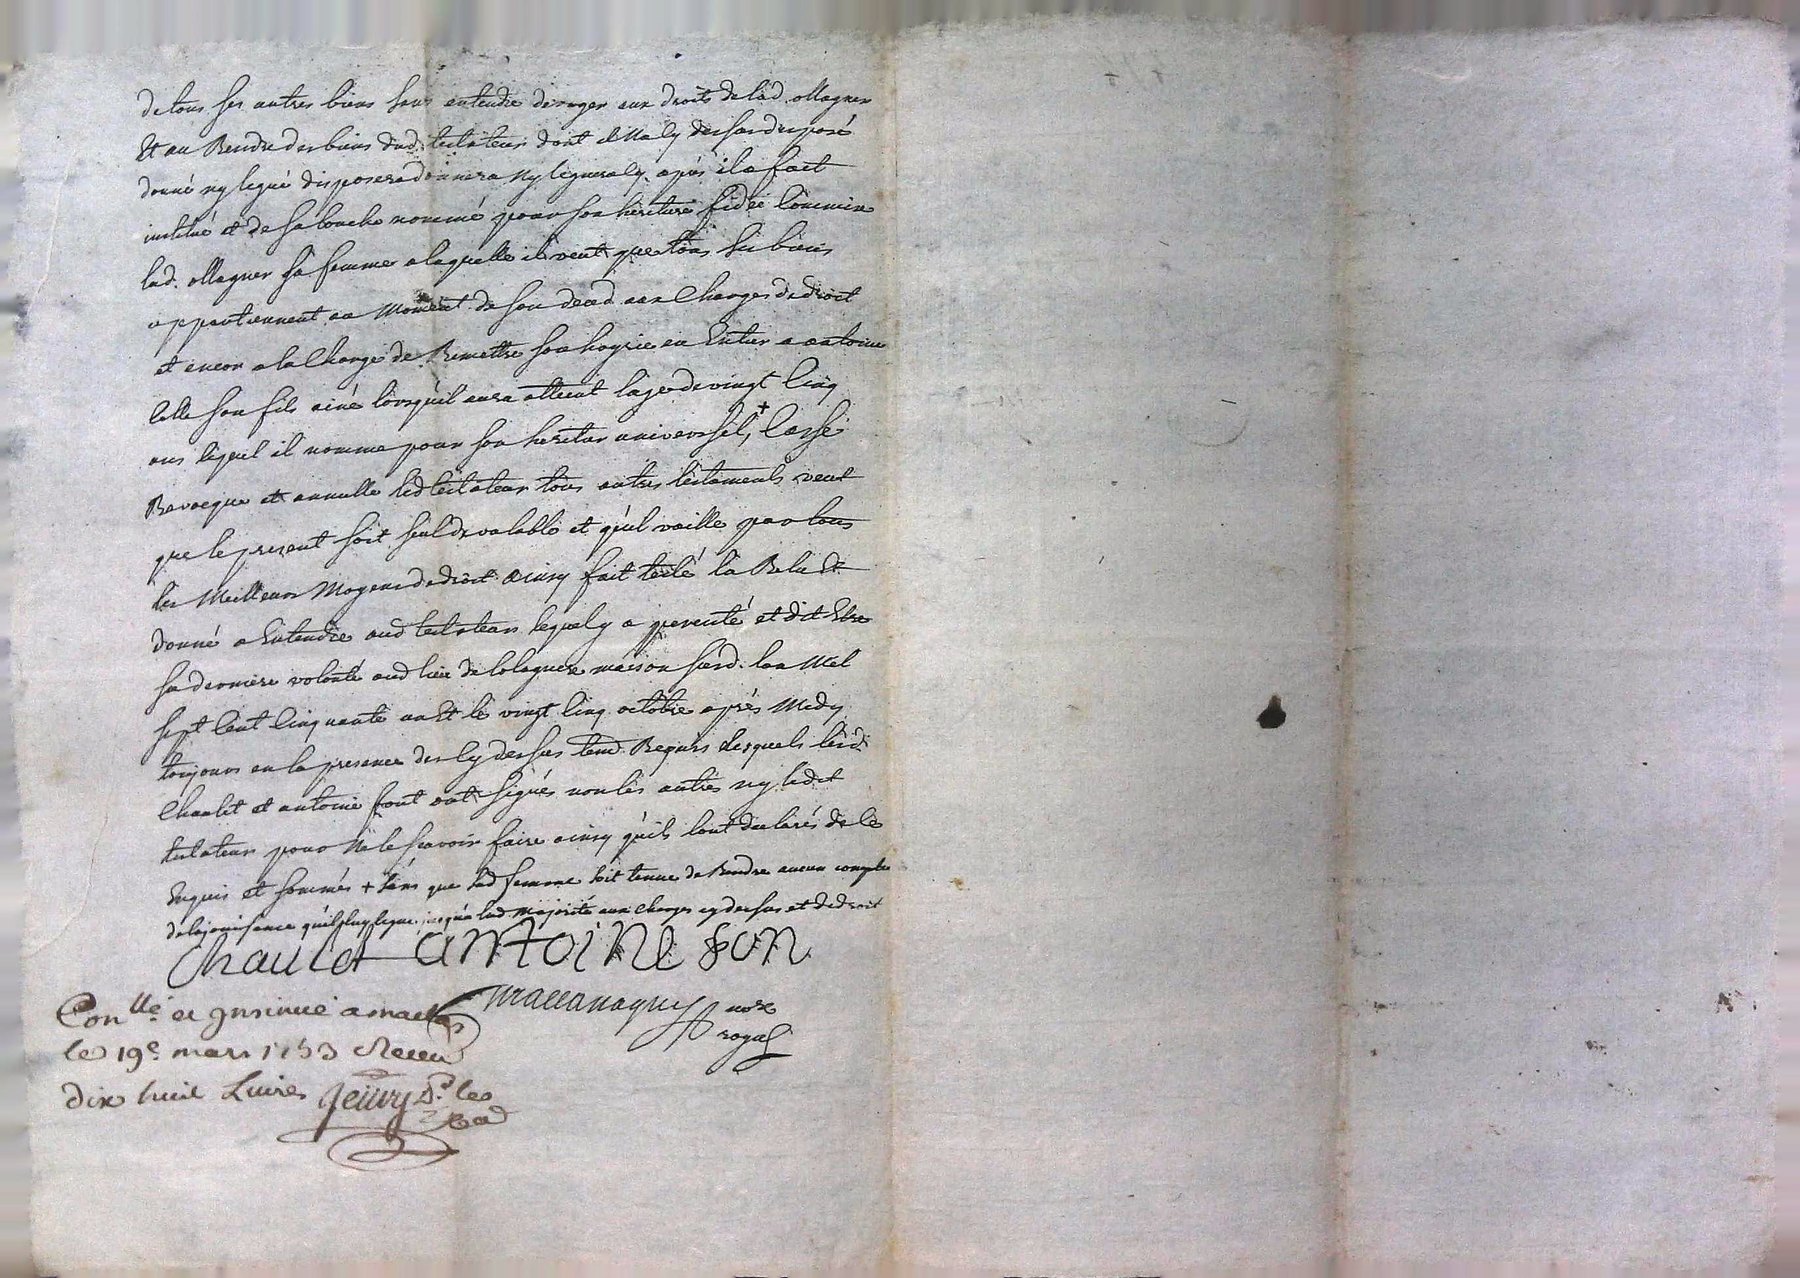 de tous ses autres biens sans entendre deroger aux droits de lad. Magner
Et au Rendre des biens dud. testateur dont il Na cy dessus disposé
donné ny legué disposera donnera Ny leguera cy après il a fait
institué et de sa bouche nommé pour son heritiere fidei Commire
lad. Magner sa femme a laquelle il veut que tous ses biens
appartiennent au Moment de son deced aux Charges de droit
et encor a la Charge de Remettre son hoyrie en Entier a antoine
son fils ainé lorsqu'il aura atteint lage de vingt Cinq
ans lequel il nomme pour son heritier universel, + Casse
Revocque et annulle led testateur tous autres testaments veut
que le present soit seul de valable et qu'il vaille par tous
les Meilleurs Moyens de droit ainsy fait testé la Relu Et
donné a Entendre aud testateur lequel y a percisté et dit Etre
sa derniere volonté aud lieu de maison susd. lan Mil
sept Cent Cinquante un Et le vingt Cinq octobre après Midy
toujours en la presence des cy dessus tem. Requis desquels lesd.
Chaulet et antoine font ont signés non les autres ny ledit
testateur pour Ne le scavoir faire ainsy qu'ils l'ont declarés de ce
Enquis et sommés + sans que lad femme soit tenue de Rendre aucun compte
de la jouissance qu'il luy legue jusqu'a lad Majorité aux charges cy dessus et de droit
Chaulet antoine fon
nore
royal
Con.llé et Insinué a
le 19e mars 1753 Receu
dix huit Livres